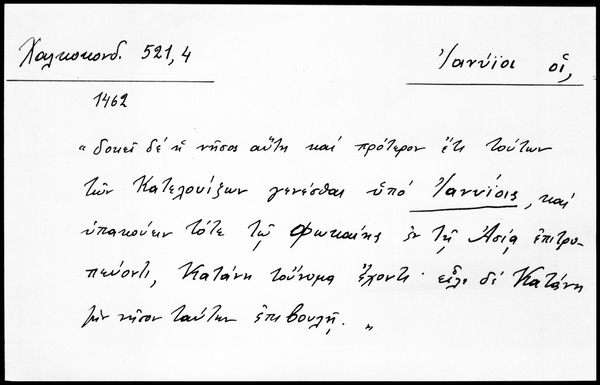 Χαλκοκονδ. 521,4
Ἰανύϊοι οἱ,
1462
« δοκεῖ δὲ ἡ νῆσος αὕτη καὶ πρότερον ἔτι τούτων
τῶν Κατελουίξων γενέσθαι ὑπό Ἰαννΐοις, καὶ
ὑπακούειν τότε τῷ Φωκαίης ἐν τῇ Ἀσίᾳ ἐπιτρο-
πεύοντι, Κατάνη τοὔνομα ἔχοντι· εἷλε δὲ Κατάνη
τὴν νῆσον ταύτην ἐπιβουλῇ. »